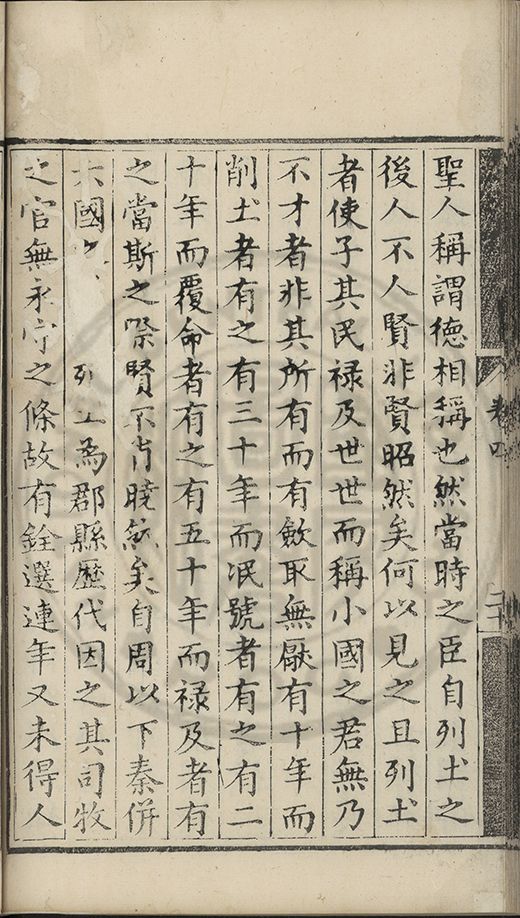 聖人稱謂德相稱也然當時之臣自列土之
後人不人賢非賢昭然矣何以見之且列土
者使子其民祿及世世而稱小國之君無乃
不才者非其所有而有斂取無厭有十年而
削土者有之有三十年而泯號者有之有二
十年而覆命者有之有五十年而祿及者有
之當斯之際賢不肖曉然矣自周以下秦併
六國列土為郡縣歷代因之其司牧
之官無永守之條故有銓選連年又未得人
卷四
二十